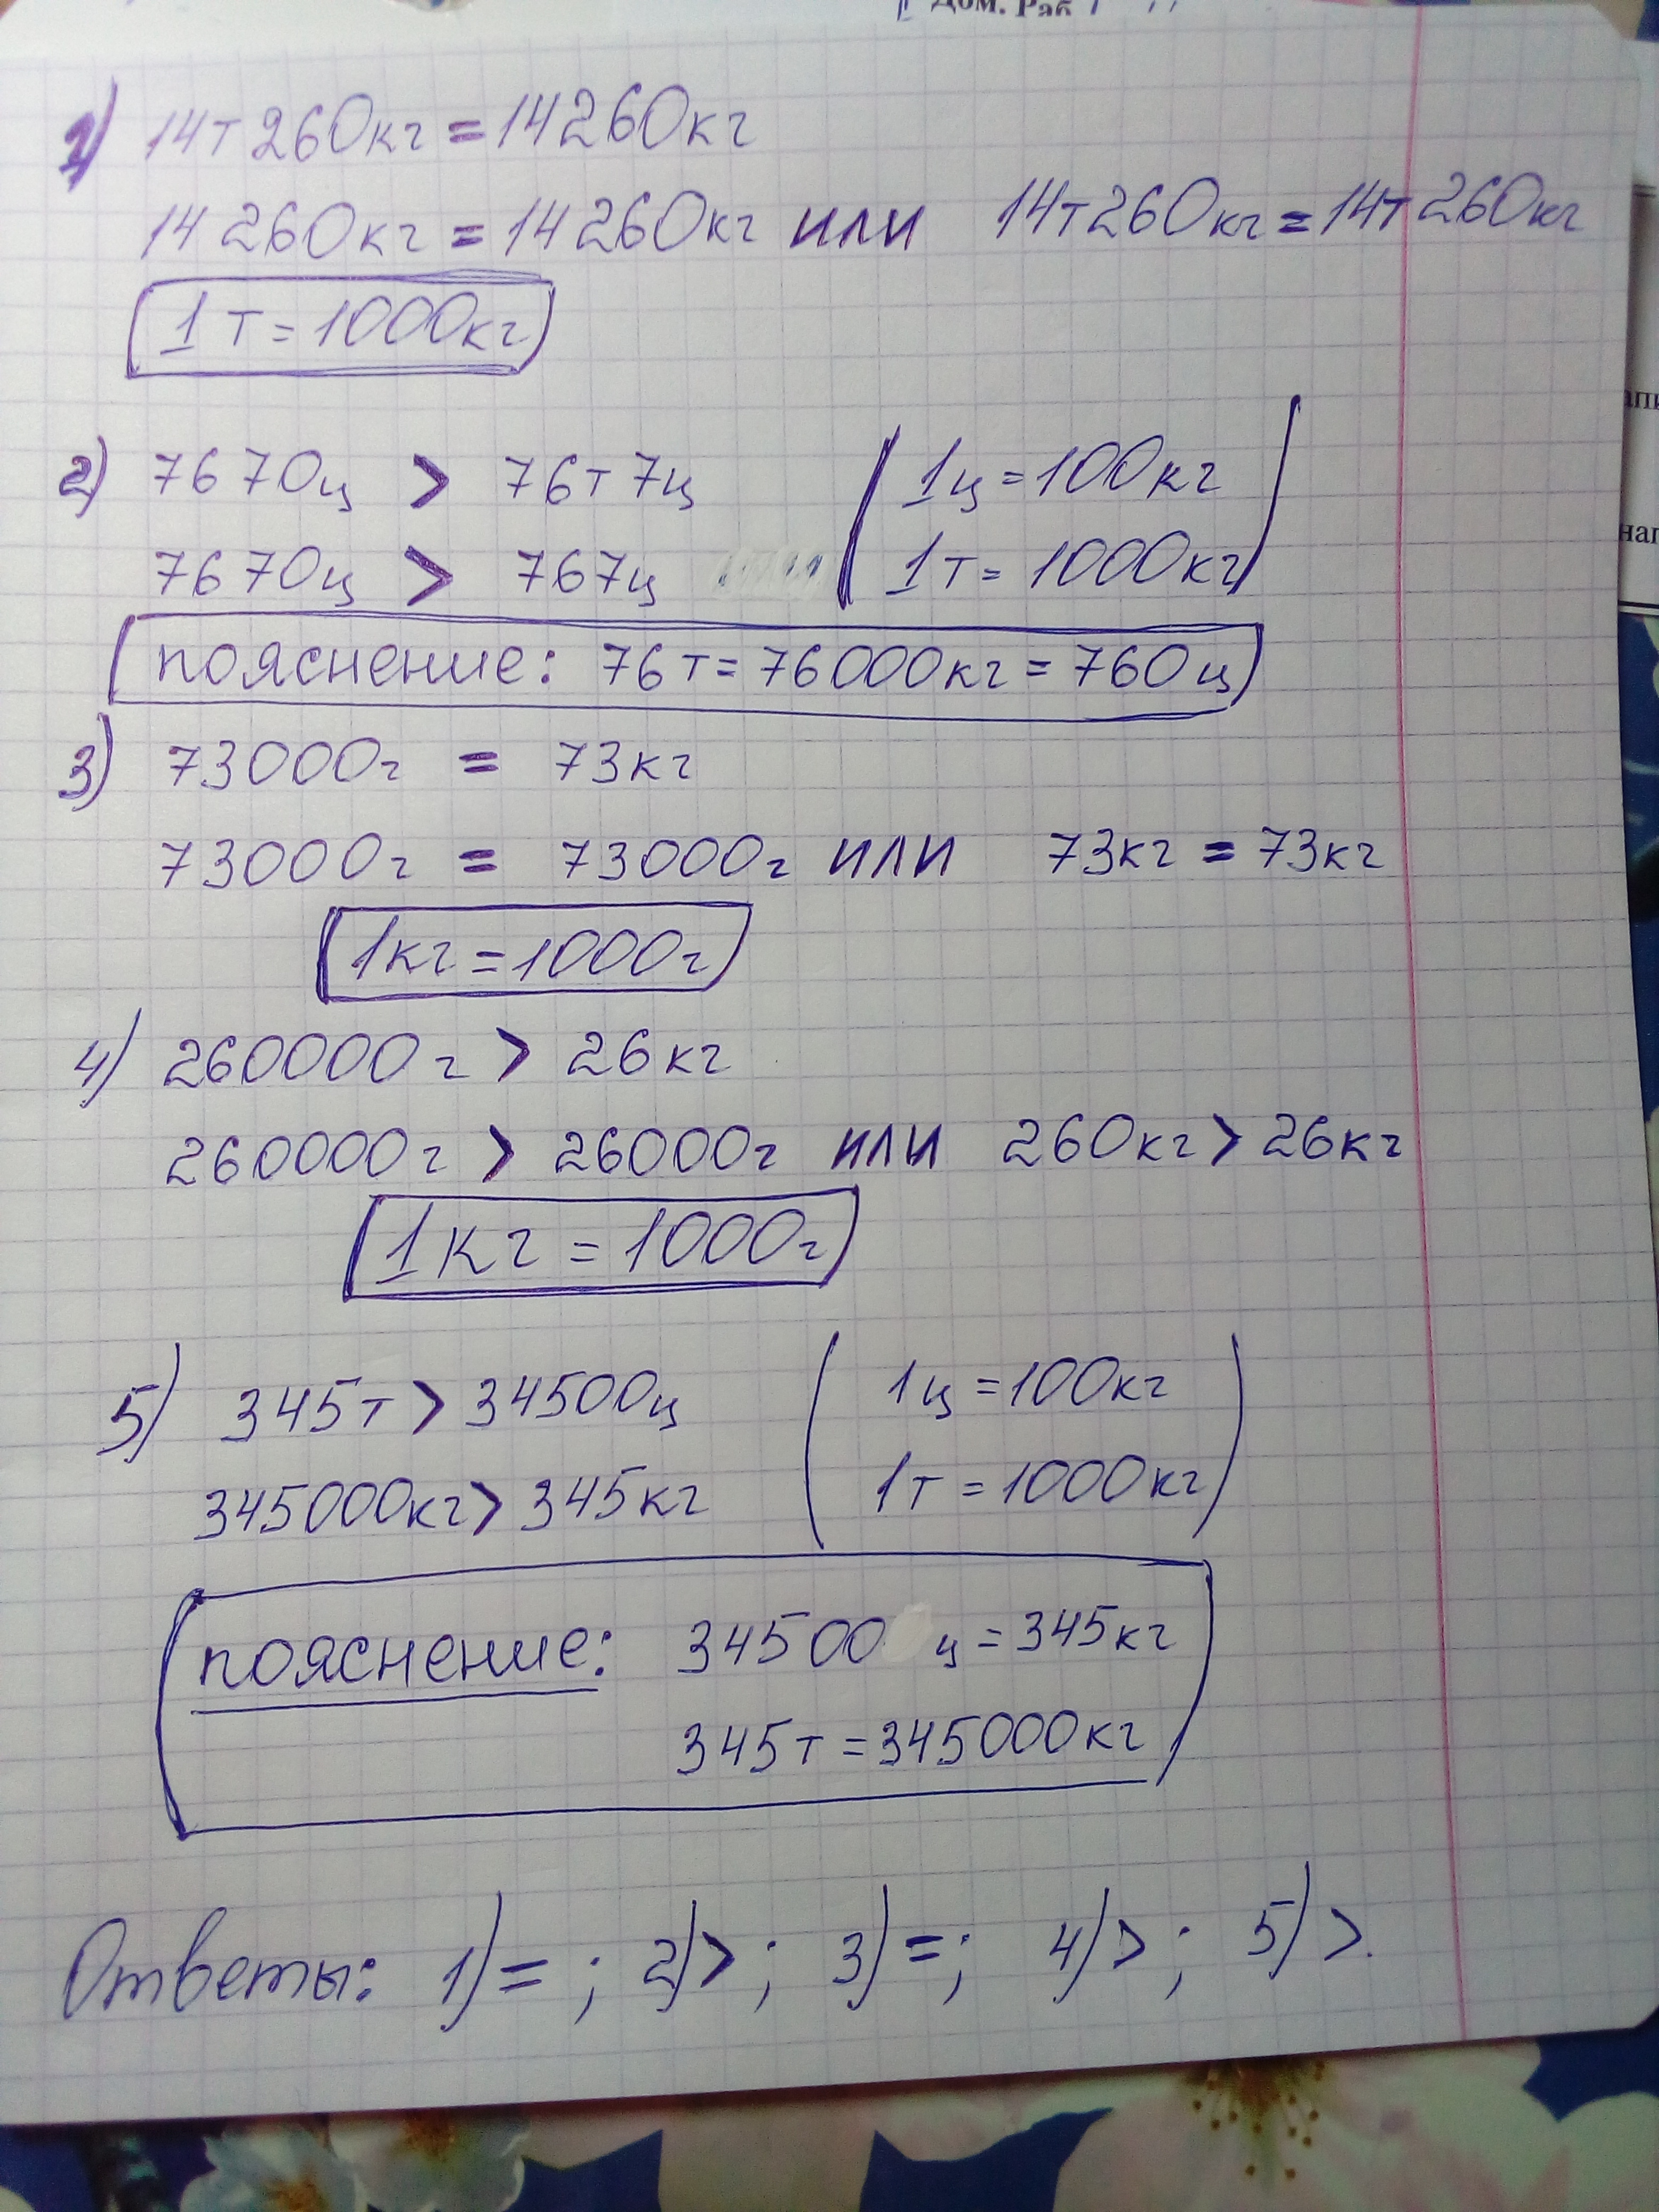 Дом. Раб
1) 14т 260кг = 14260кг
14 260кг = 14 260кг или 14т 260кг = 14т 260кг
1 т = 1000кг
2) 7670ц > 76т 7ц
1ц = 100кг
7670ц > 767ц
1т = 1000кг
пояснение: 76 т = 76000кг = 760 ц
3) 73000г = 73кг
73000г = 73000г или 73кг = 73кг
1кг = 1000г
4) 260000 г > 26 кг
260000 г > 26000г или 260кг > 26кг
1 кг = 1000г
5) 345т > 34500ц
1 ц = 100кг
345000кг > 345кг
1т = 1000кг
пояснение: 34500 ц = 345кг
345т = 345000кг
Ответы: 1) = ; 2) > ; 3) = ; 4) > ; 5) >.